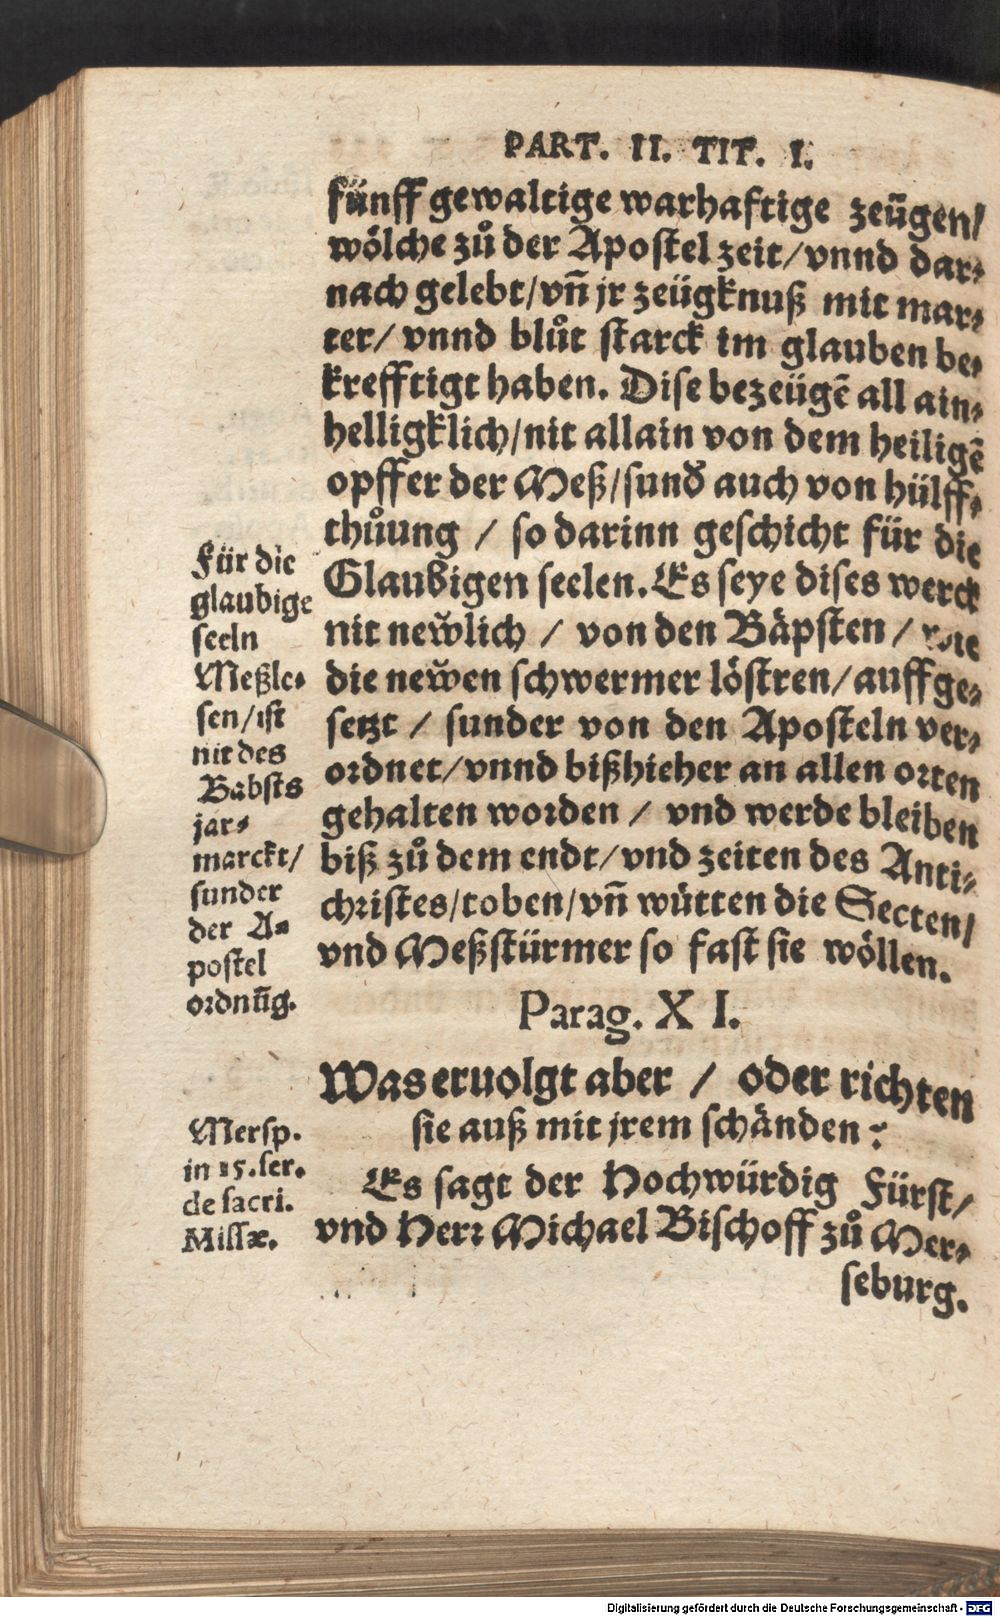 PART. II. TIT. I.
fünff gewaltige warhaftige zeügen/
wölche zů der Apostel zeit/vnnd dar⸗
nach gelebt/vn̄ jr zeügknuß mit mar⸗
ter/ vnnd blůt starck im glauben be⸗
krefftigt haben. Dise bezeügē all ain⸗
helligklich/nit allain von dem heiligē
opffer der Meß/sund̄ auch von hülff⸗
thůung / so darinn geschicht für die
Glaubigen seelen. Es seye dises werck
nit new̆lich / von den Bäpsten / wie
die new̆en schwermer löstren/auffge⸗
setzt / sunder von den Aposteln ver⸗
ordnet/vnnd bißhieher an allen orten
gehalten worden / vnd werde bleiben
biß zů dem endt/vnd zeiten des Anti⸗
christes/toben/vn̄ wütten die Secten/
vnd Meßstürmer so fast sie wöllen.
Für die
glaubige
seeln
Meßle⸗
sen/ist
nit des
Babsts
jar⸗
marckt/
sunder
der A⸗
postel
ordnūg.
Parag. X I.
Was eruolgt aber / oder richten
sie auß mit jrem schänden?
Mersp.
in 15. ser.
de sacri.
Missæ.
Es sagt der Hochwürdig Fürst/
vnd Herr Michael Bischoff zů Mer⸗
seburg.
Digitalisierung gefördert durch die Deutsche Forschungsgemeinschaft - DFG